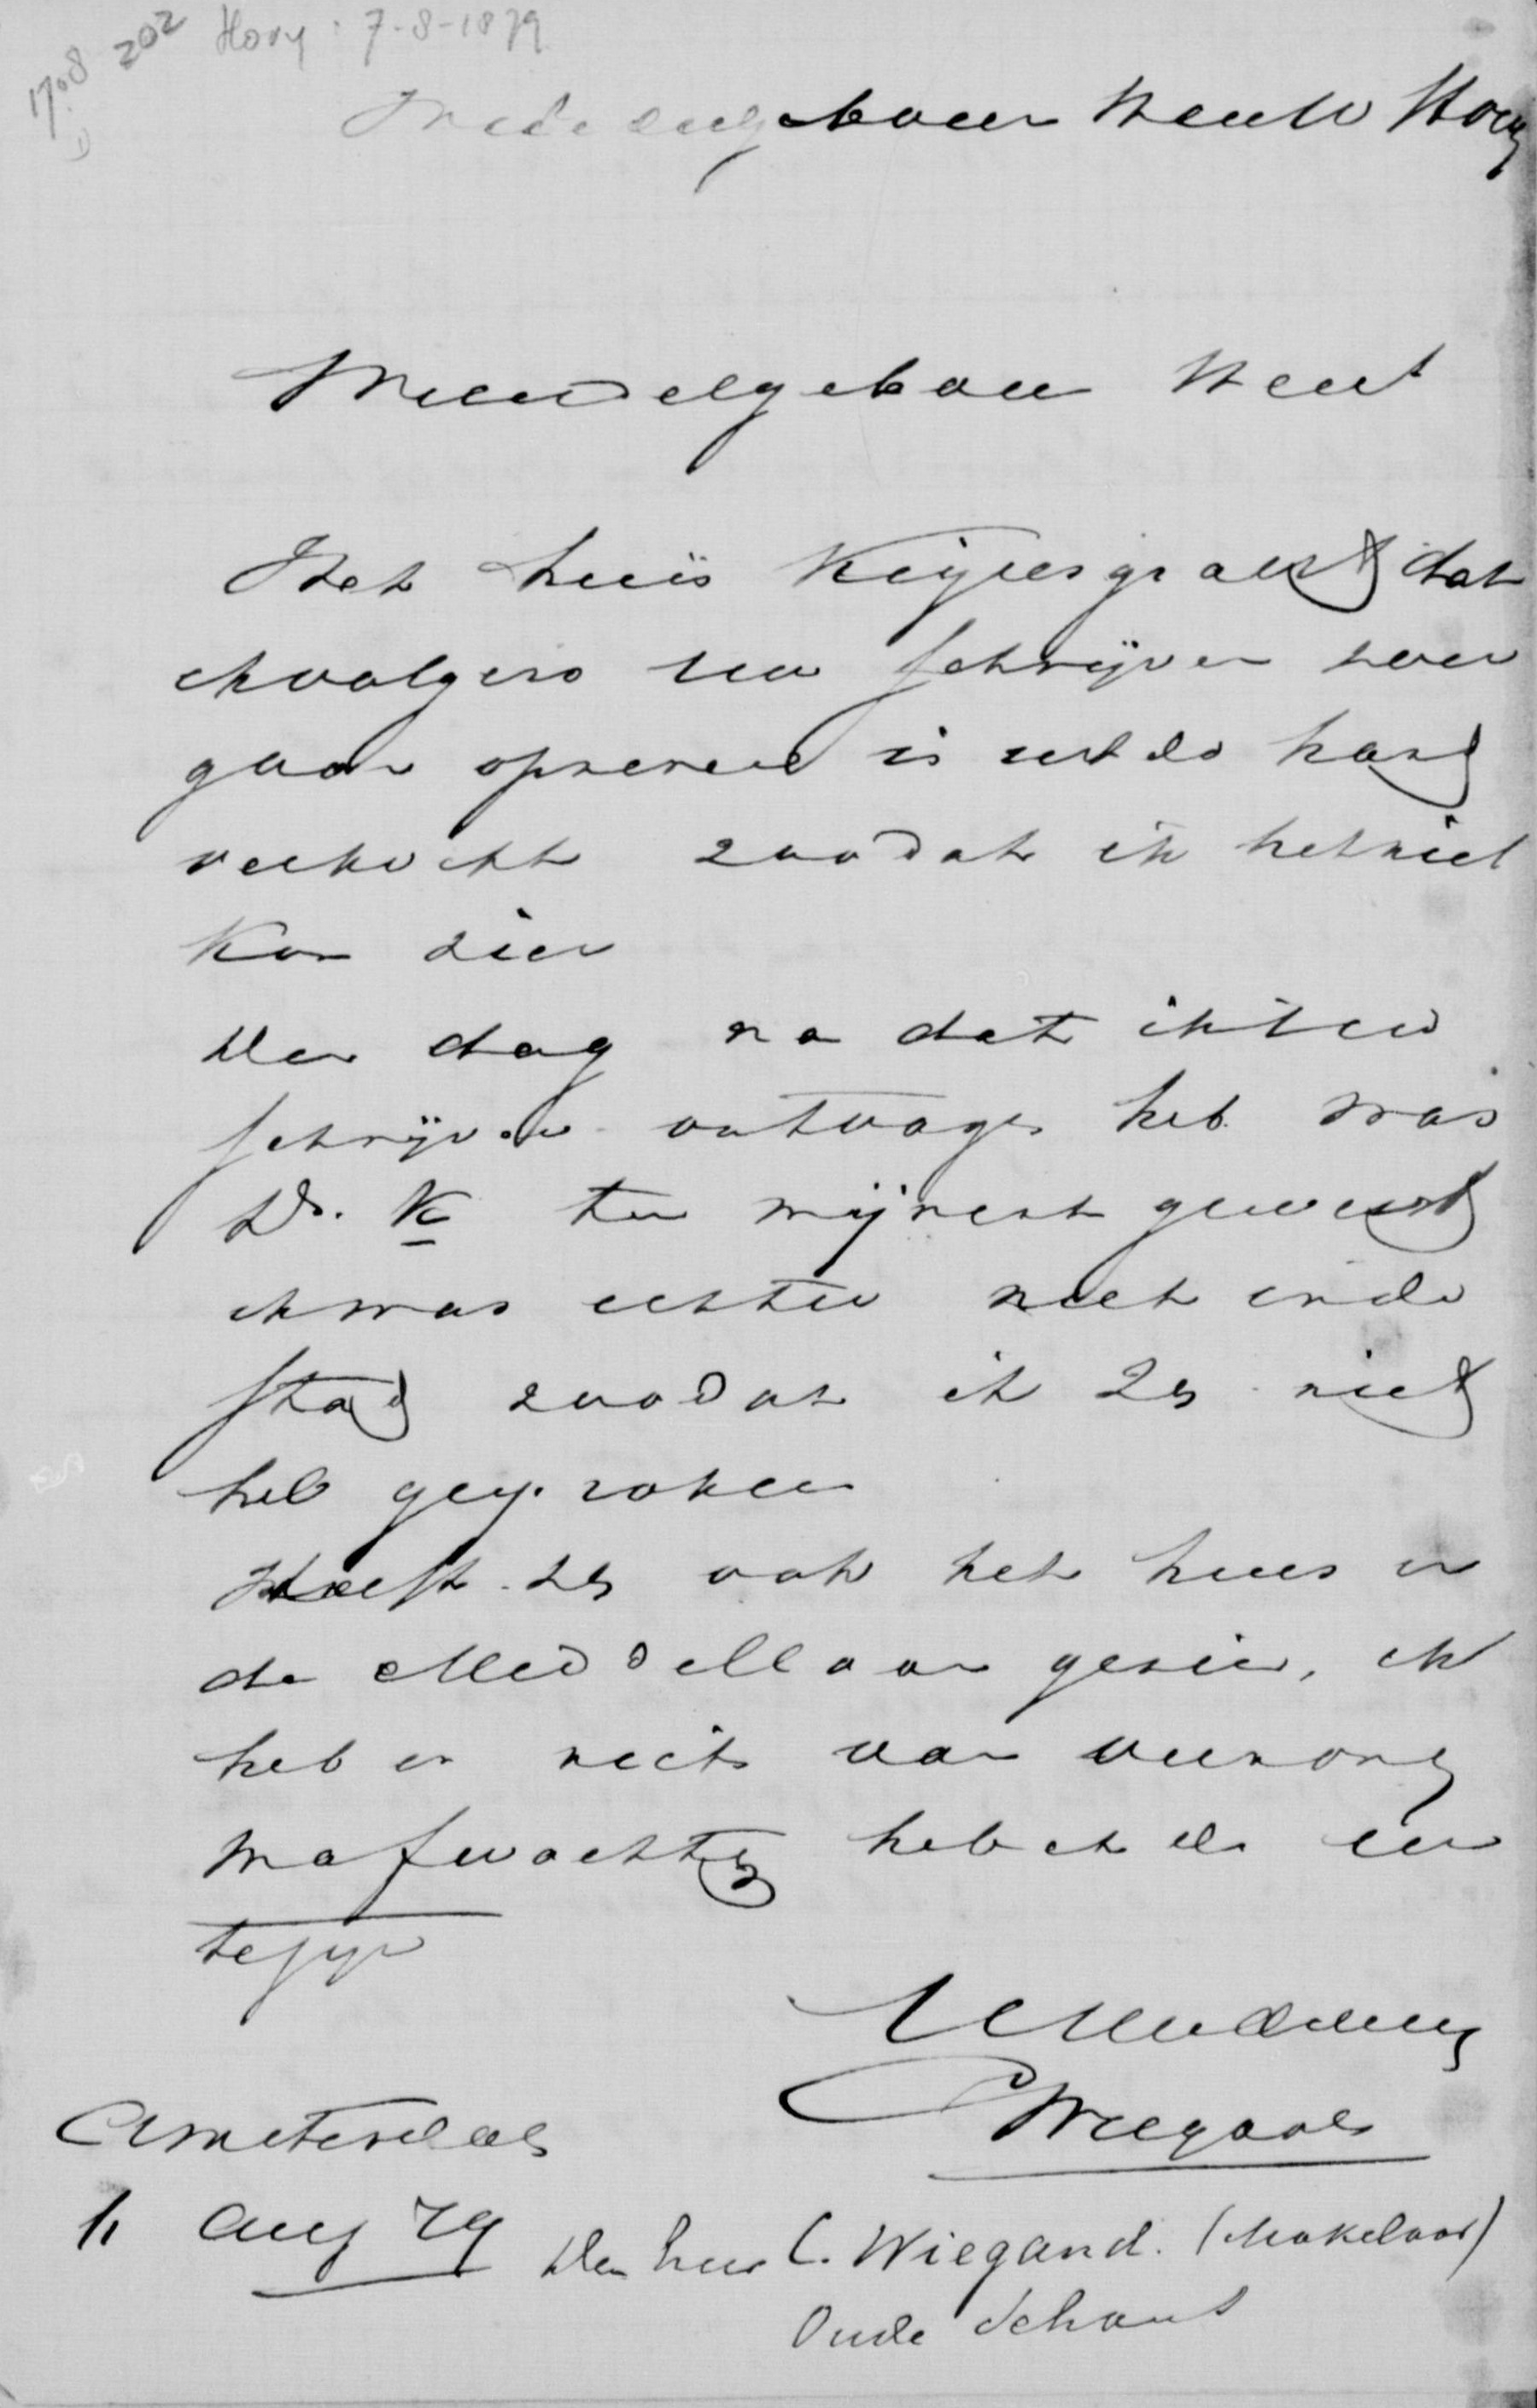 1708
202 Hovy: 7-8-1879
Weledelgeboren Heer W Hovy
Weledelgeboren Heer
Het huis Keizersgracht dat
ik volgens uw schrijven zou
gaan opnemen is uit de hand
verkocht zoodat ik het niet
kon zien
Den dag na dat ik uw
schrijven ontvangen heb was
Dr. K ten mijnent geweest
ik was echter niet in de
stad zoodat ik ZEd niet
heb gesproken
Heeft ZEd ook het huis in
de Middellaan gezien, ik
heb er niets van vernomen
In afwachting heb ik de eer
te zijn
UEd Dienaar
C Wiegand
Amsterdam
11 Aug 79
Den heer C. Wiegand. (Makelaar)
Oude Schans